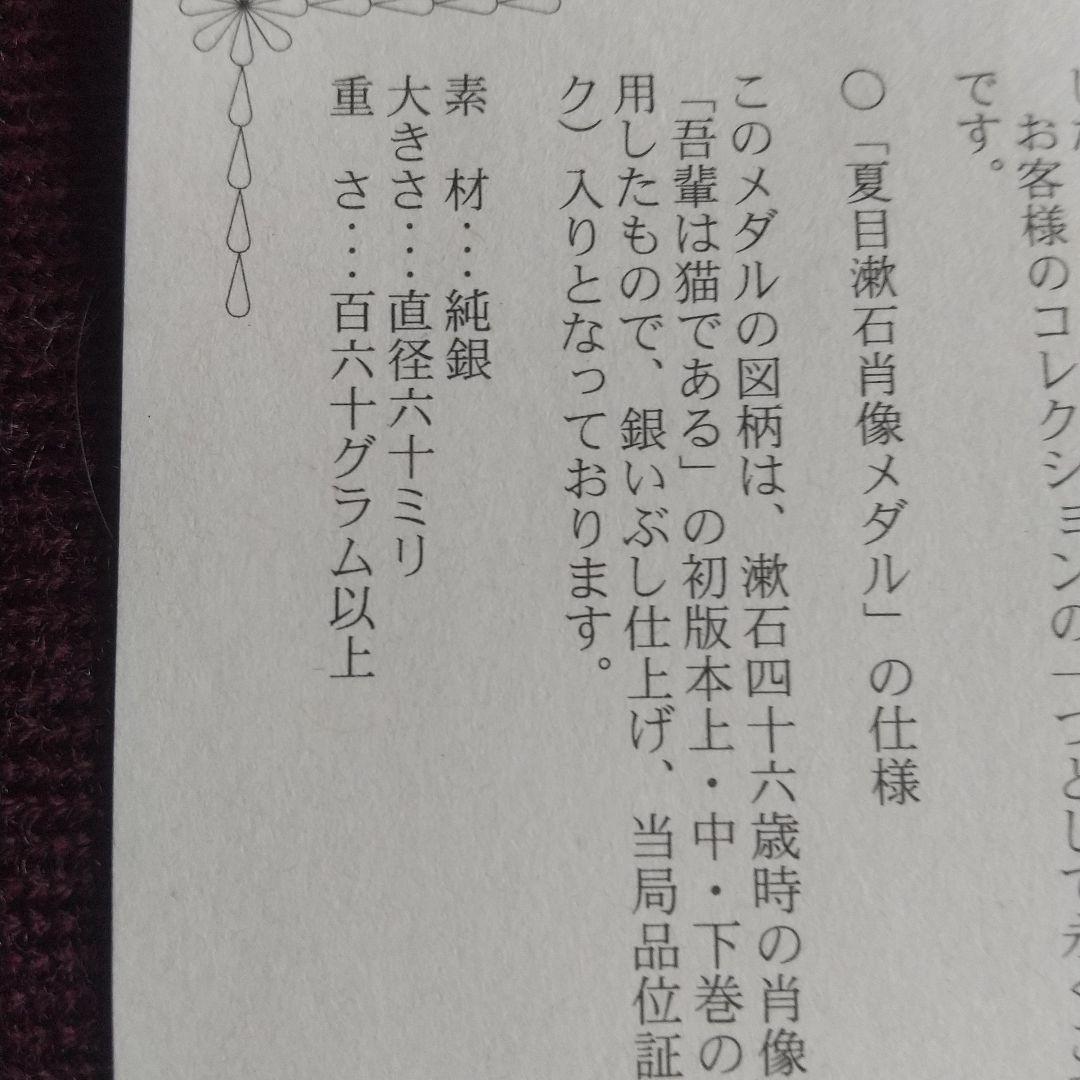 お客様のコレクションの一つとして
です。
○「夏目漱石肖像メダル」の仕様
このメダルの図柄は、漱石四十六歳時の肖像
「吾輩は猫である」の初版本上・中・下巻の
用したもので、銀いぶし仕上げ、当局品位証
ク）入りとなっております。
素　材・・・純銀
大きさ・・・直径六十ミリ
重　さ・・・百六十グラム以上